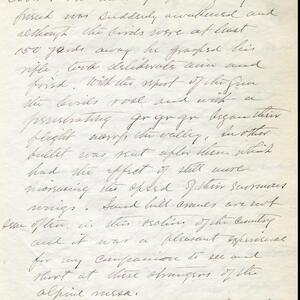 was suddenly awakened and
although the birds were at least
150 yards away he grasped his
rifle, took deliberate aim and
fired. With the report of the gun
the birds rose and with a
penetrating go-go-go began their
flight across the valley. Another
bullet was sent after them which
had the effect of still more
increasing the speed of their enormous
wings. Sand hill cranes are not
seen often in this section of the country
and it was a pleasant experience
for my companion to see and
shoot at these strangers of the
alpine mesa.